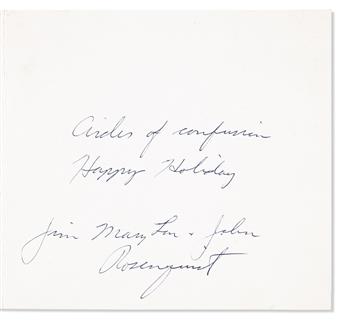 Circles of confusion
Happy Holiday
Jim Mary Lou + John
Rosenquist